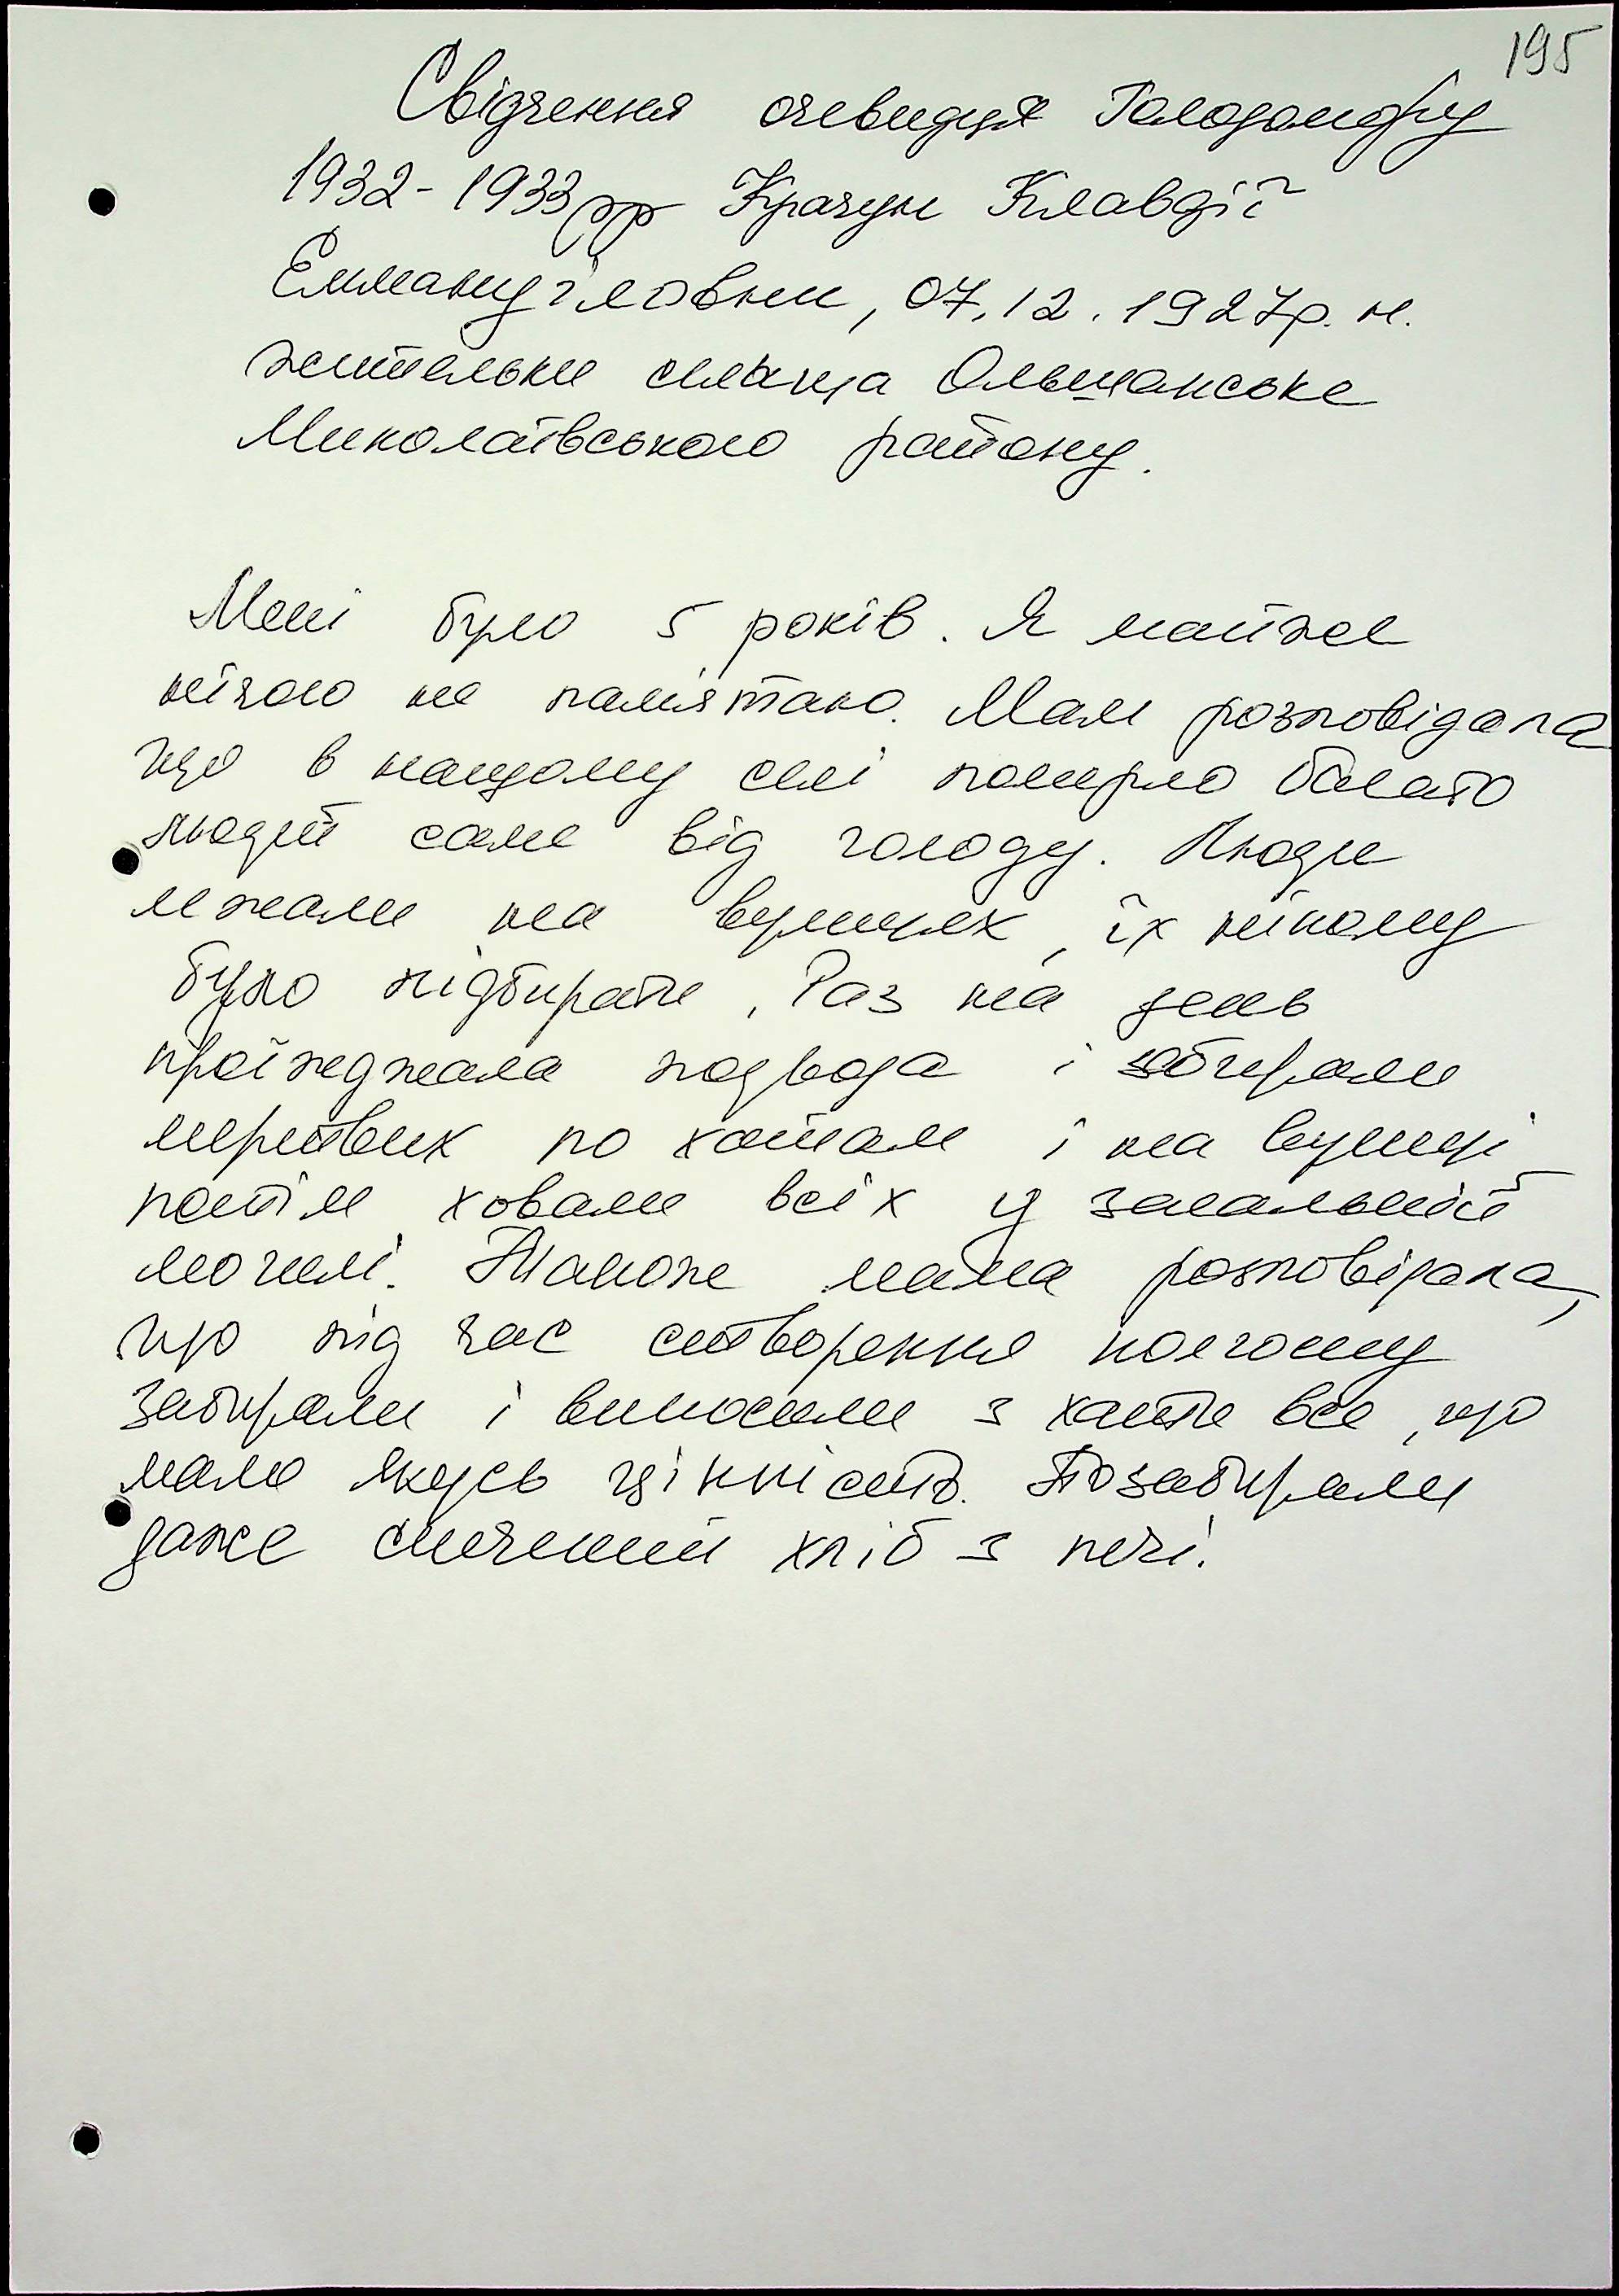 195
Свідчення очевидця Голодомору
1932-1933рр Крачун Клавдії
Еммануіловни, 07.12.1927р.н.
жительки селища Ольшанське
Миколаївського району.
Мені було 5 років. Я майже
нічого не памятаю. Мама розповідала
що в нашому селі померло багато
людей саме від голоду. Люди
лежали на вулицях, їх нікому
було підбирати. Раз на день
проїжджала подвода і забирали
мертвих по хатам і на вулиці
потім ховали всіх у загальній
могилі. Також мама розповідала,
що під час створення колгоспу
забирали і виносили з хати все, що
мало якусь цінність. Позабирали
даже спечений хліб з печі.